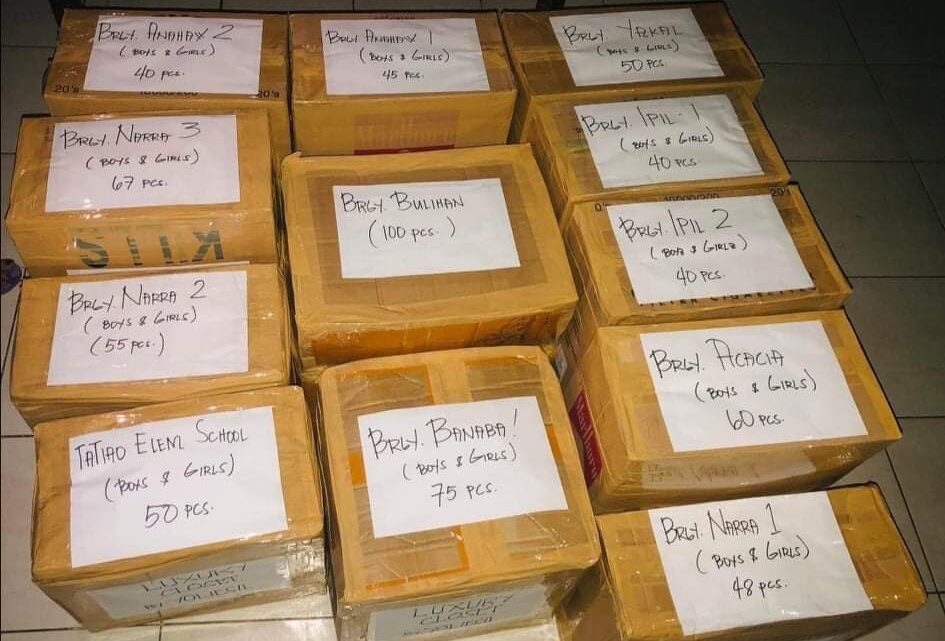 BRGY. ANAHAW 2
(BOYS & GIRLS)
40 PCS.
20's 10000/200 20's
BRGY. ANAHAW 1
(BOYS & GIRLS)
45 PCS.
BRGY. YAKAL
(BOYS & GIRLS)
50 PCS.
BRGY. NARRA 3
(BOYS & GIRLS)
67 PCS.
BRGY. BULIHAN
(100 PCS.)
BRGY. IPIL - 1
(BOYS & GIRLS)
40 PCS.
10000/200 20's
BRGY. IPIL 2
(BOYS & GIRLS)
40 PCS.
BRGY. NARRA 2
(BOYS & GIRLS)
(55 PCS.)
BRGY. ACACIA
(BOYS & GIRLS)
60 PCS.
TATIAO ELEM. SCHOOL
(BOYS & GIRLS)
50 PCS.
LUXURY
CLOSET
BRGY. BANABA!
(BOYS & GIRLS)
75 PCS.
LUXURY
CLOSET
Marlboro
BRGY. NARRA 1
(BOYS & GIRLS)
48 PCS.